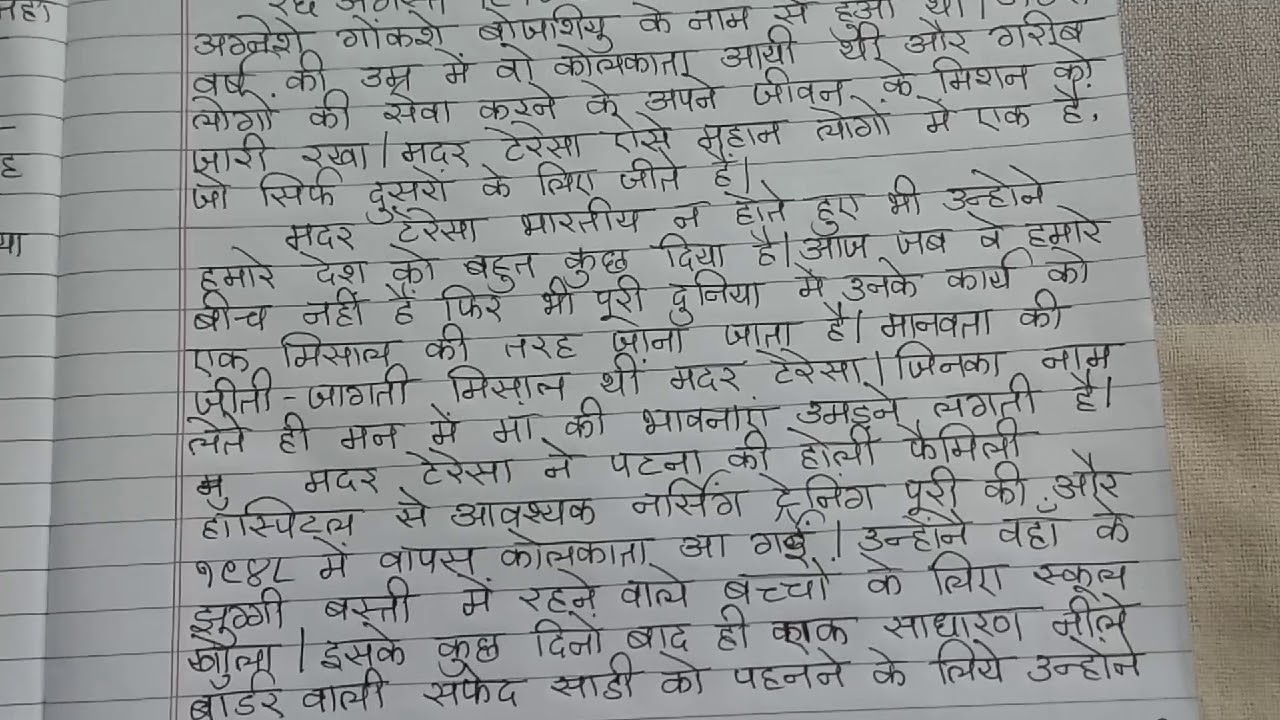 अग्नेशे गोंकशे बोजशियु के नाम से हुआ था।
वर्ष की उम्र में वो कोलकाता आयी थी और गरीब
लोगो की सेवा करने के अपने जीवन के मिशन को
जारी रखा। मदर टेरेसा ऐसे महान लोगो मे एक है,
जो सिर्फ दुसरों के लिए जीते हैं।
मदर टेरेसा भारतीय न होते हुए भी उन्होने
हमारे देश को बहुत कुछ दिया है। आज जब वे हमारे
बीच नहीं हैं फिर भी पूरी दुनिया में उनके कार्य को
एक मिसाल की तरह जाना जाता है। मानवता की
जीती-जागती मिसाल थीं मदर टेरेसा। जिनका नाम
लेते ही मन में मां की भावनाएं उमड़ने लगती है।
मदर टेरेसा ने पटना की होली फैमिली
हॉस्पिटल से आवश्यक नर्सिंग ट्रेनिंग पूरी की और
१९४८ में वापस कोलकाता आ गईं। उन्होंने वहाँ के
झुग्गी बस्ती में रहने वाले बच्चो के लिए स्कूल
खोला। इसके कुछ दिनो बाद ही एक साधारण नीले
बार्डर वाली सफेद साडी को पहनने के लिये उन्होंने